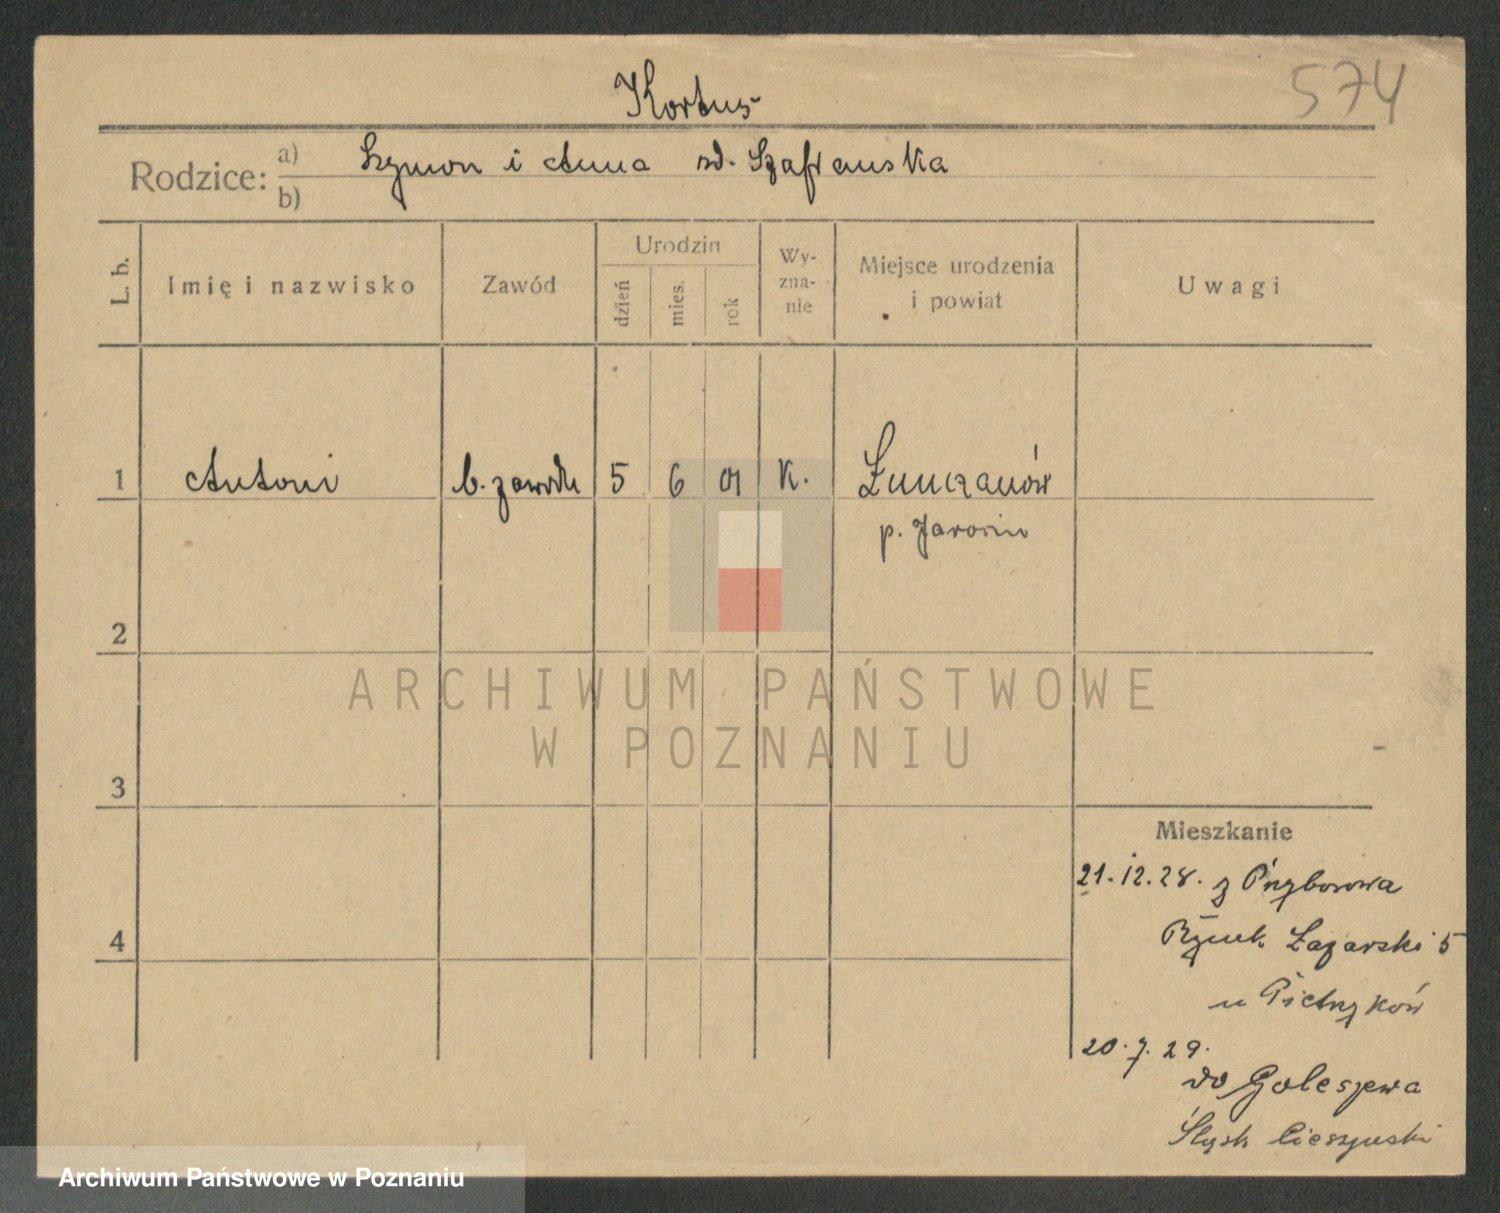 574
Kortus
Rodzice: a) Szymon i Anna zd. Szafrańska
b)
L. b. Imię i nazwisko Zawód Urodzin dzień mies. rok Wy-zna-nie Miejsce urodzenia i powiat Uwagi
1 Antoni b. zawodu 5 6 01 k. Łuszczanów
p. Jarocin
2
ARCHIWUM PAŃSTWOWE
W POZNANIU
3
Mieszkanie
21.12.28. z Przyborowa
4
Rynek Łazarski 5
u Pietrzyków
20.7.29.
do Goleszewa
Śląsk Cieszyński
Archiwum Państwowe w Poznaniu